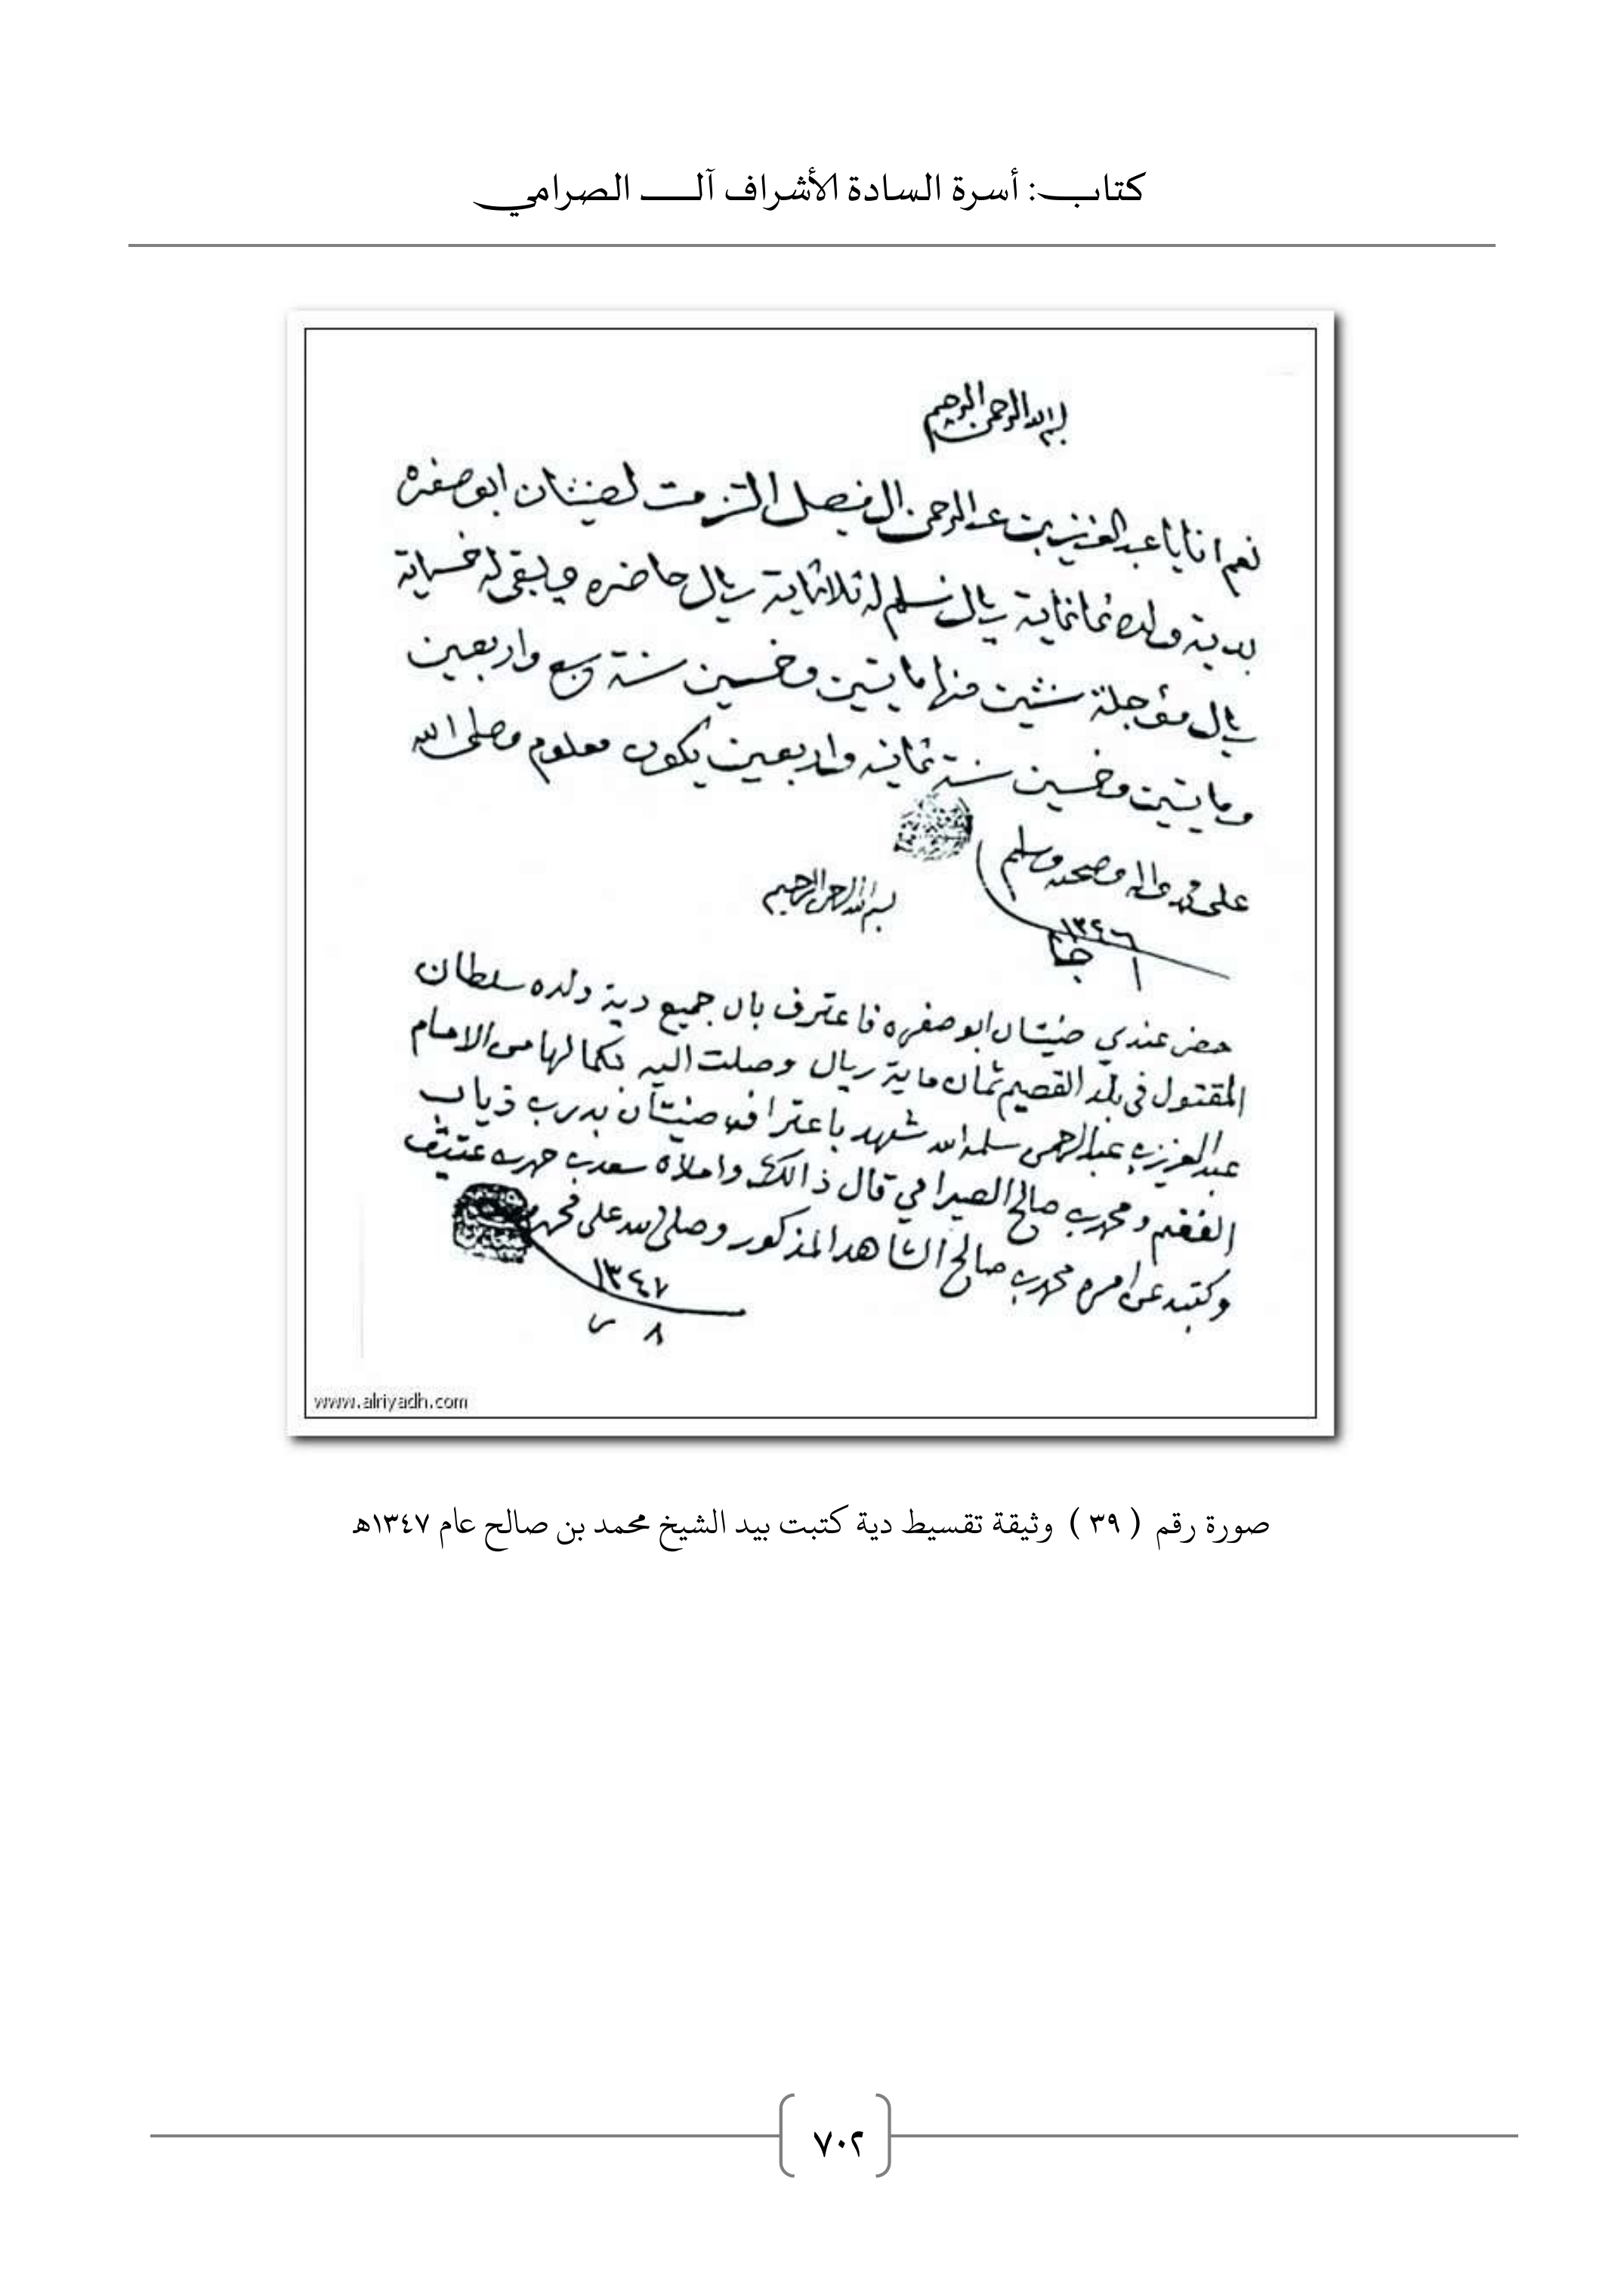 كتاب: أسرة السادة الأشراف آل الصرامي
بسم الله الرحمن الرحيم
نعم انايا عبد العزيز بن عبد الرحمن ال فيصل التزمت لضيتان ابو صفره
بدية ولده ثمانماية ريال نسلم له ثلاثماية ريال حاضره ويبقى له خمسماية
ريال مؤجلة سنتين منها مايتين وخمسين سنة سبع واربعين
ومايتين وخمسين سنة ثمانيه واربعين يكون معلوم وصلى الله
على محمد واله وصحبه وسلم
١٣٤٦
١ جا
بسم الله الرحمن الرحيم
حضر عندي ضيتان ابو صفره فاعترف بان جميع دية ولده سلطان
المقتول في بلد القصيم ثمان ماية ريال وصلت اليه بكمالها من الامام
عبد العزيز بن عبد الرحمن سلمه الله شهد باعترافه ضيتان بدر بن ذياب
الفغم ومحمد بن صالح الصيرامي قال ذالك واملاه سعد بن حمد بن عتيق
وكتبه عن امره محمد بن صالح الشاهد المذكور وصلى الله على محمد
١٣٤٧
٨ ر
www.alriyadh.com
صورة رقم ( ٣٩ ) وثيقة تقسيط دية كتبت بيد الشيخ محمد بن صالح عام ١٣٤٧هـ
٧٠٢